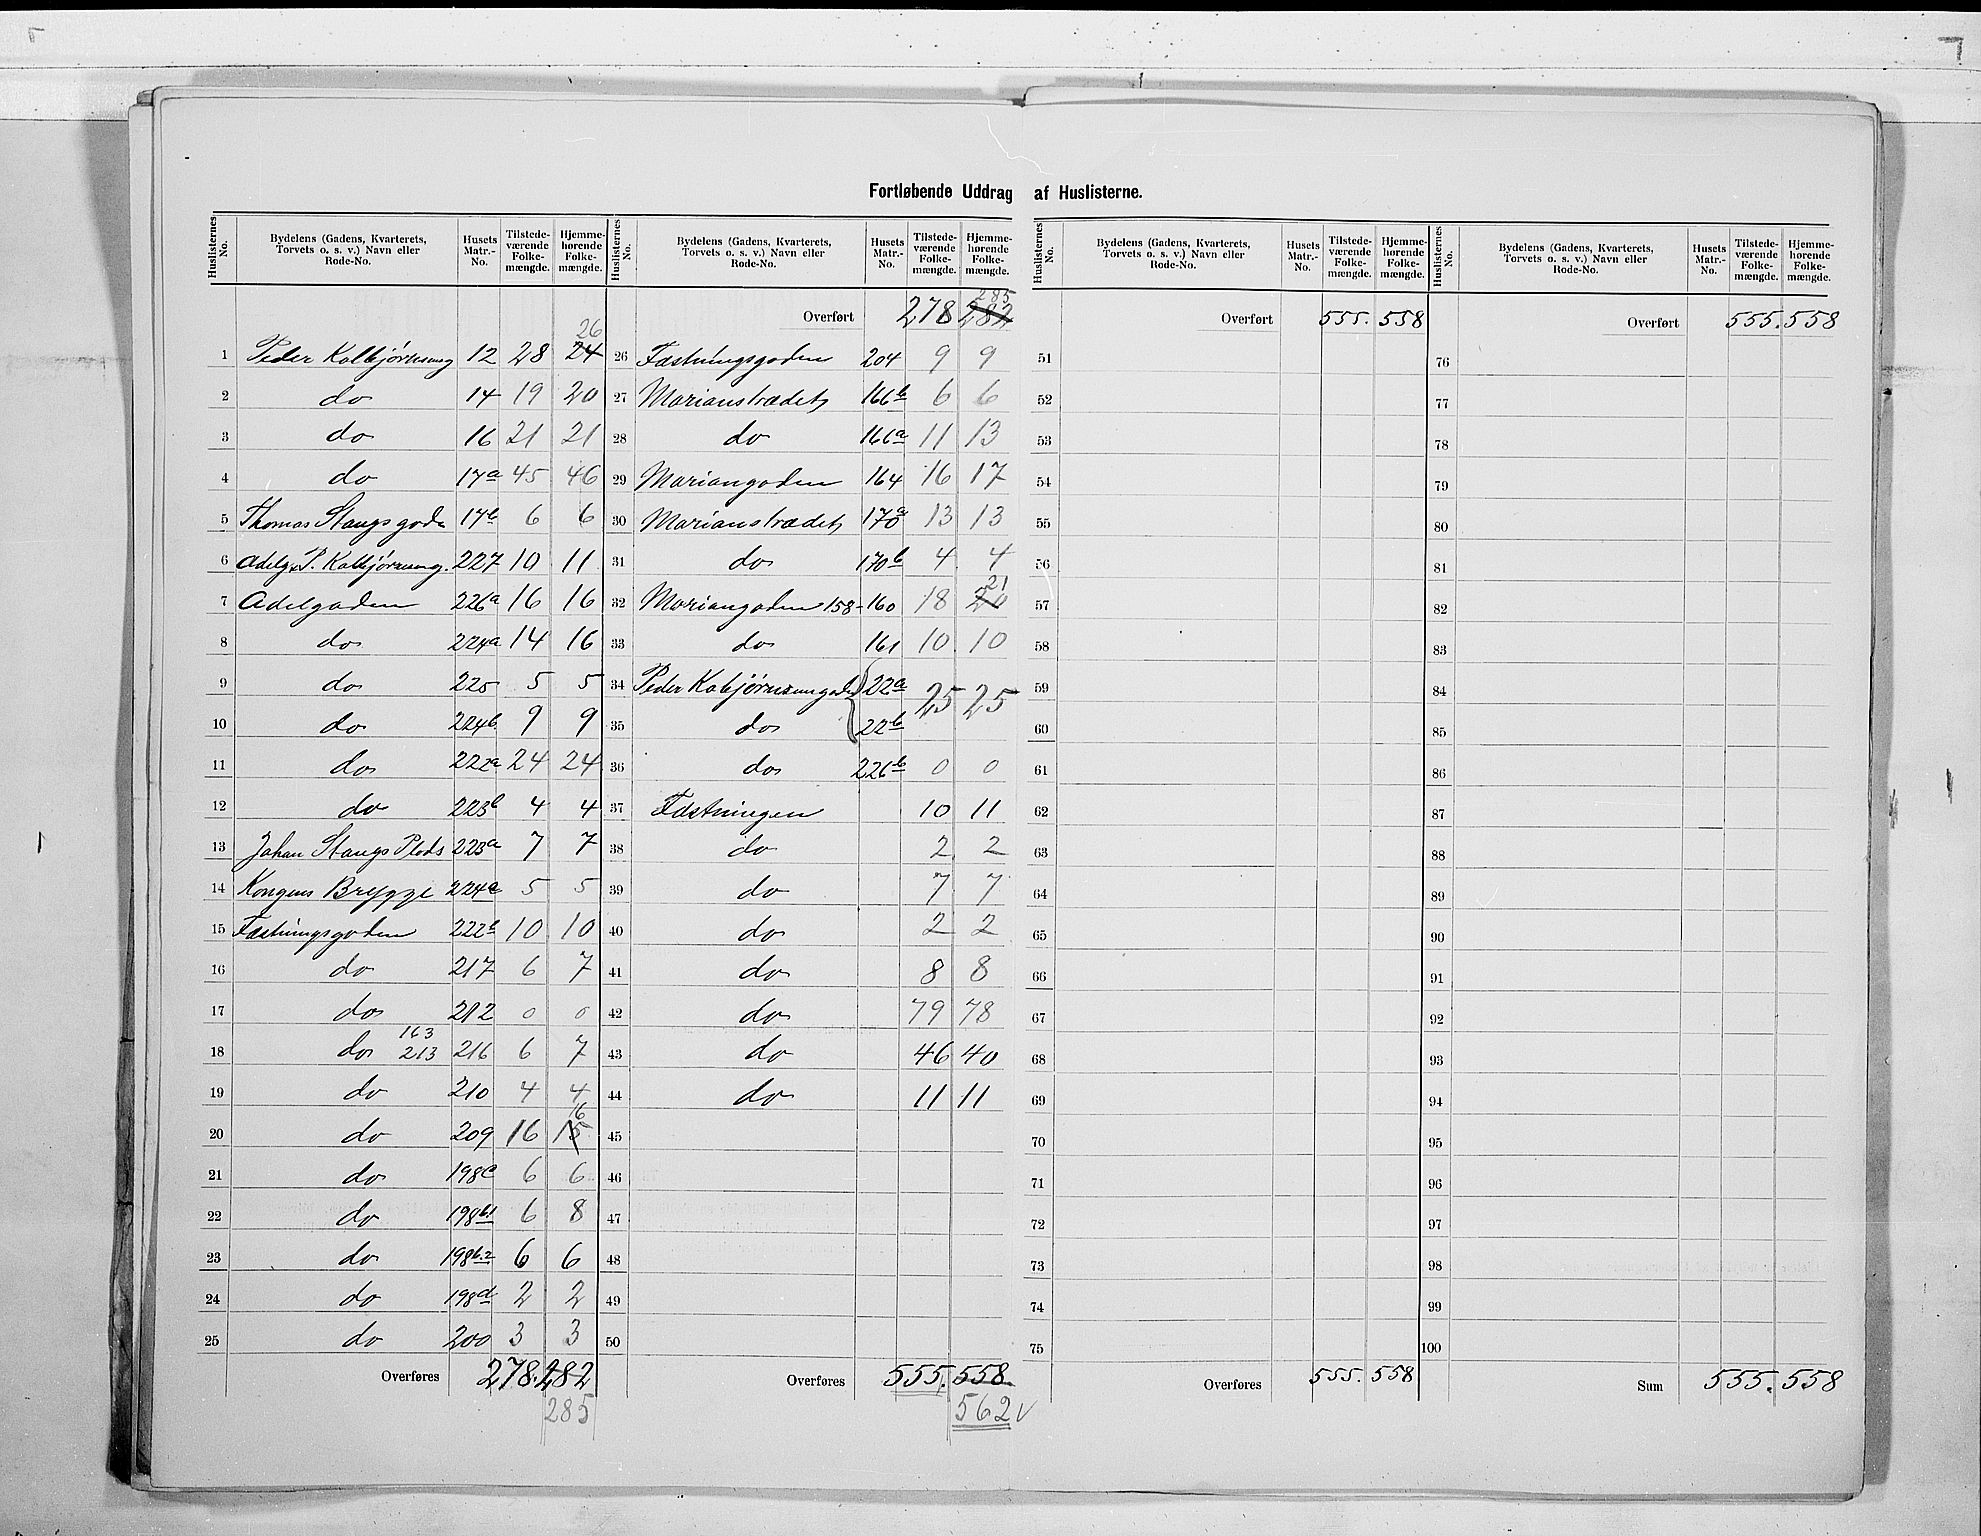 Fortløbende Uddrag af Huslisterne.
Huslisternes No. | Bydelens (Gadens, Kvarterets, Torvets o. s. v.) Navn eller Rode-No. | Husets Matr.-No. | Tilstedeværende Folkemængde. | Hjemmehørende Folkemængde.
26
1 Peder Kolbjørnsensg 12 28 24
2 do 14 19 20
3 do 16 21 21
4 do 17a 45 46
5 Thomas Stangsgade 17b 6 6
6 Adelg. P. Kolbjørnseng. 227 10 11
7 Adelgaden 226a 16 16
8 do 224a 14 16
9 do 225 5 5
10 do 224b 9 9
11 do 222a 24 24
12 do 223b 4 4
13 Johan Stangs Plads 223a 7 7
14 Kongens Brygge 224a 5 5
15 Fæstningsgaden 222b 10 10
16 do 217 6 7
17 do 212 0 0
163
18 do 213 216 6 7
19 do 210 4 4
16
20 do 209 16 15
21 do 198c 6 6
22 do 198b1 6 8
23 do 198b.2 6 6
24 do 198d 2 2
25 do 200 3 3
Overføres 278. 282
285
Huslisternes No. | Bydelens (Gadens, Kvarterets, Torvets o. s. v.) Navn eller Rode-No. | Husets Matr.-No. | Tilstedeværende Folkemængde. | Hjemmehørende Folkemængde.
285
Overført 278 282
26 Fæstningsgaden 204 9 9
27 Marianstrædet 166b 6 6
28 do 166a 11 13
29 Mariangaden 164 16 17
30 Marianstrædet 170a 13 13
31 do 170b 4 4
21
32 Mariangaden 158-160 18 20
33 do 161 10 10
34 Peder Kolbjørnsensgaden 22a 25 25
35 do 22b
36 do 226b 0 0
37 Fæstningen 10 11
38 do 2 2
39 do 7 7
40 do 2 2
41 do 8 8
42 do 79 78
43 do 46 40
44 do 11 11
45
46
47
48
49
50
Overføres 555. 558.
562 √
Huslisternes No. | Bydelens (Gadens, Kvarterets, Torvets o. s. v.) Navn eller Rode-No. | Husets Matr.-No. | Tilstedeværende Folkemængde. | Hjemmehørende Folkemængde.
Overført 555. 558
51
52
53
54
55
56
57
58
59
60
61
62
63
64
65
66
67
68
69
70
71
72
73
74
75
Overføres 555. 558
Huslisternes No. | Bydelens (Gadens, Kvarterets, Torvets o. s. v.) Navn eller Rode-No. | Husets Matr.-No. | Tilstedeværende Folkemængde. | Hjemmehørende Folkemængde.
Overført 555. 558
76
77
78
79
80
81
82
83
84
85
86
87
88
89
90
91
92
93
94
95
96
97
98
99
100
Sum 555. 558